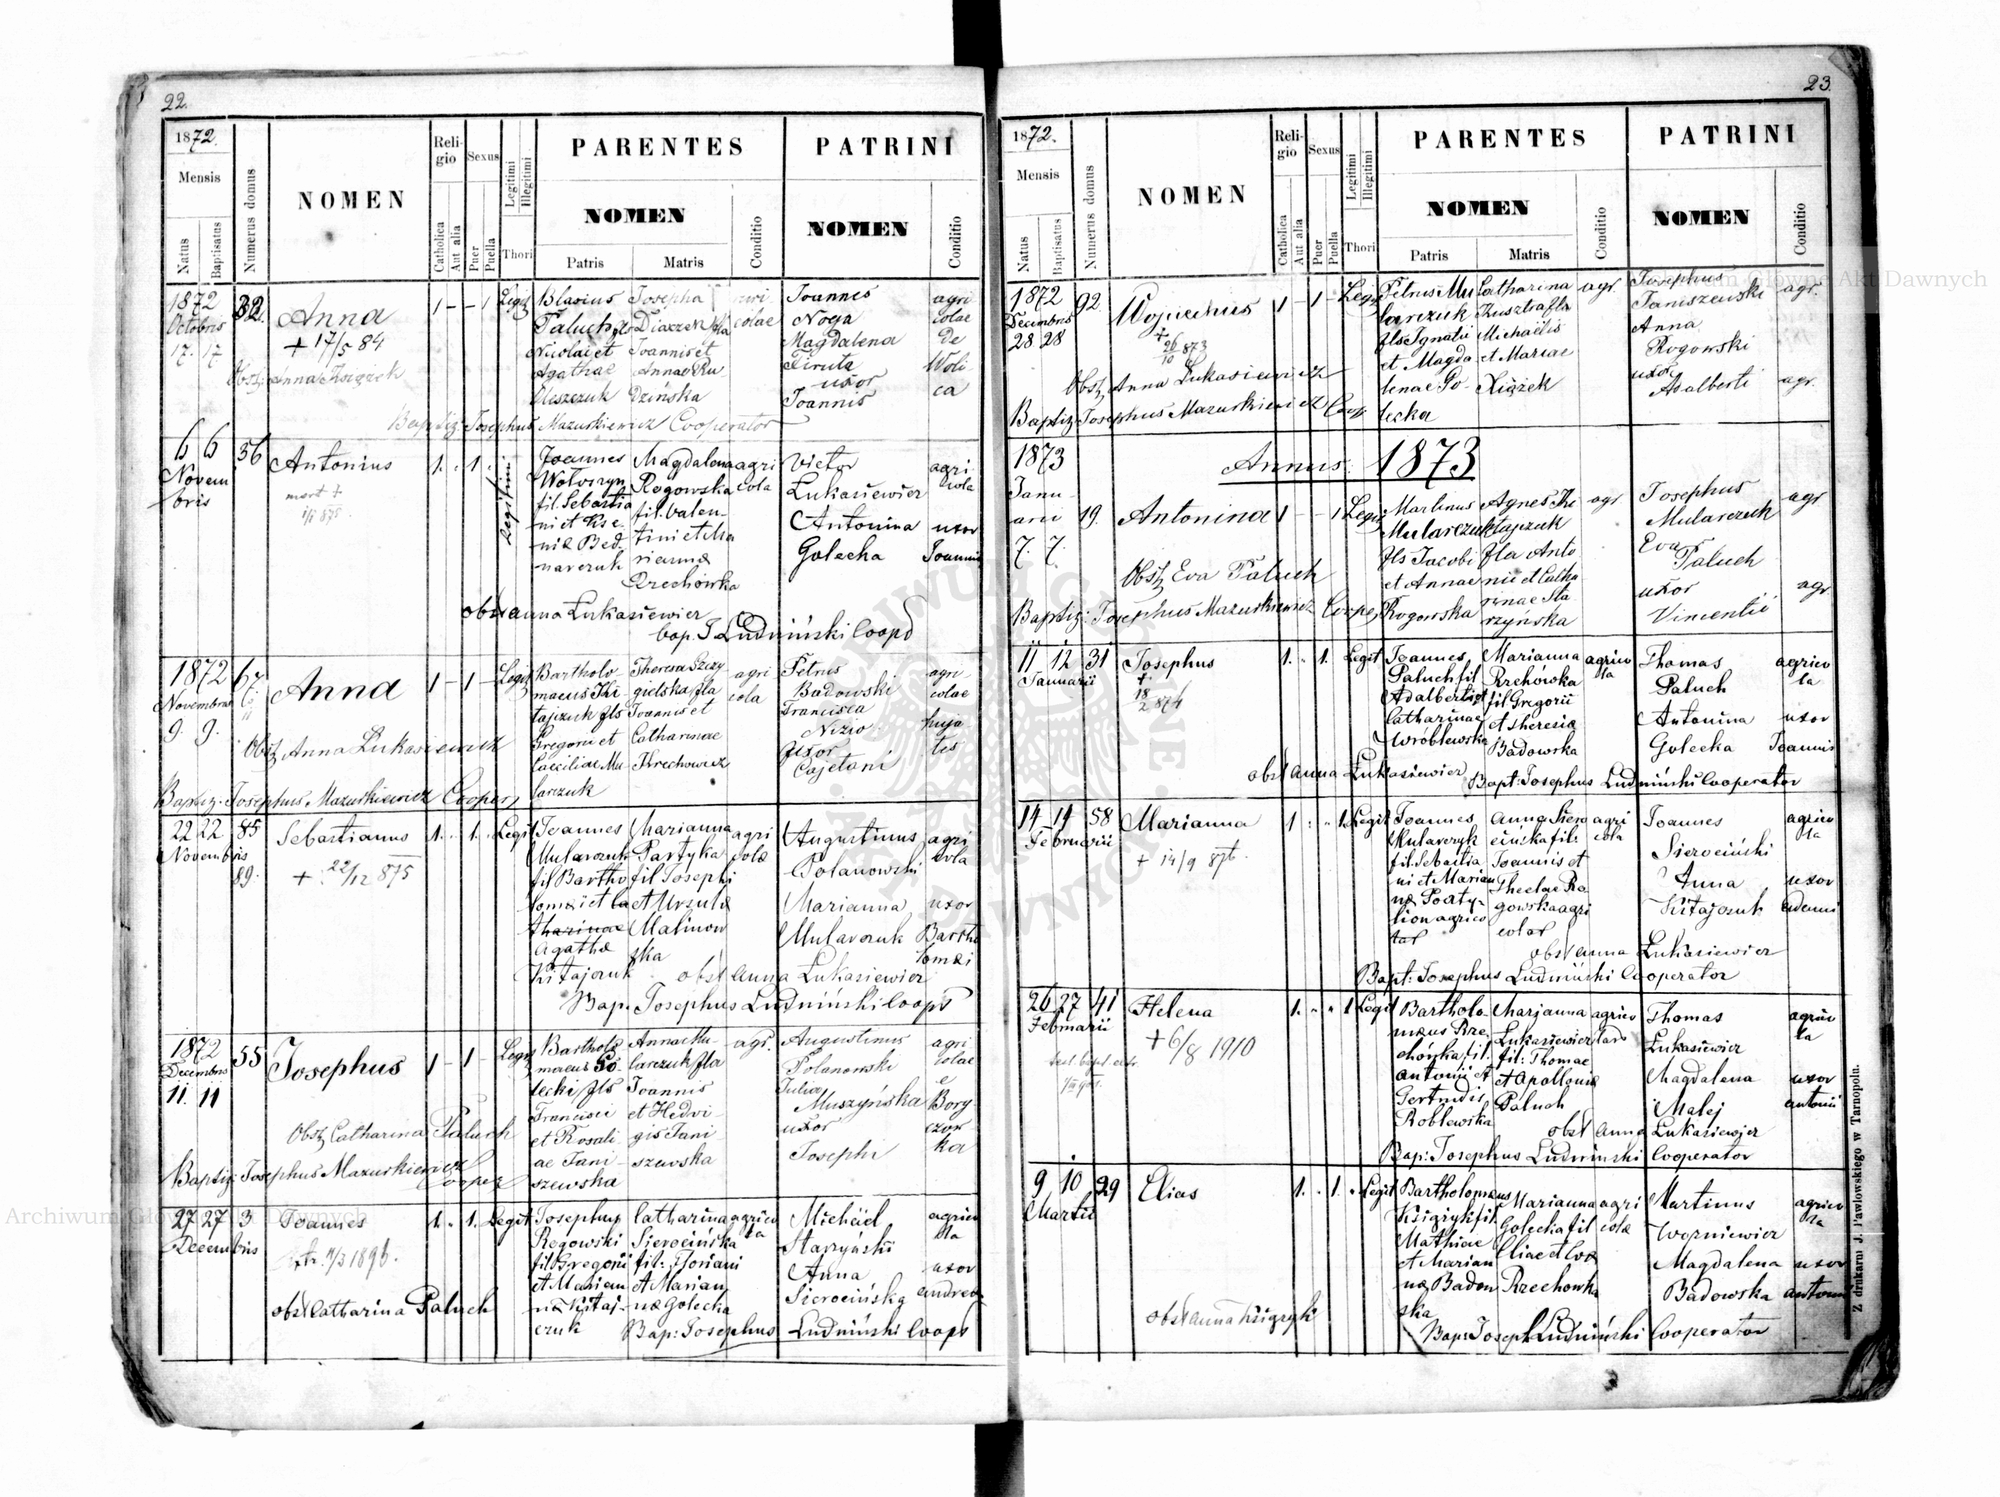 22.
1872.
Mensis
Natus
Baptisatus
Numerus domus
NOMEN
Religio
Catholica
Aut alia
Sexus
Puer
Puella
Legitimi
Illegitimi
Thori
PARENTES
NOMEN
Patris
Matris
Conditio
PATRINI
NOMEN
Conditio
1872
Octobris
17. 17
32.
Anna
+ 17/5 84
1 - - 1
Legit
Blasius
Paluch fls
Nicolai et
Agathae
Oleszczuk
Josepha
Joannis et
Annae Ru
dzińska
colae
Joannes
Noga
Magdalena
uxor
Joannis
agri
colae
de
Woli
ca
Obstz Anna Książek
Baptiz. Josephus Mazurkiewicz Cooperator
6 6
Novem
bris
56
Antonius
1. . 1.
Legitimi
Joannes
Wołoszyn
fil. Sebastia
ni et
Magdalena
Rogowska
fil. Valen
tini et Ma
riannæ
Orechówka
agri
cola
Victor
Łukasiewicz
Antonina
Golecka
agri
cola
uxor
Joannis
obst anna Łukasiewicz
bap. J Ludmiński Coopd
1872
Novembris
9. 9.
67.
Anna
1 - 1 -
Legit
Bartholo-
maeus Ki
tajczuk fls
Gregorii et
Caeciliae Mu
larczuk
Theresa Szczy
gielska fla
Joannis et
Catharinae
Krechowicz
agri
cola
Petrus
Badowski
Francisca
Nizio
uxor
Cajetani
agri-
colae
huja
tes
Obstz Anna Łukasiewicz
Baptiz. Josephus Mazurkiewicz Cooper
22 22
Novembris
85
89.
Sebastianus
+ 22/12 875
1. . 1.
Legit
Joannes
Mularczuk
fil Bartho
lomæi et Ca
tharinae
Agathæ
Kitajczuk
Marianna
Partyka
fil Josephi
et Urszulæ
Malinow
ska
agri
colæ
Augustinus
Polanowski
Marianna
Mularczuk
agri
cola
uxor
Bartho
lomæi
obst anna Łukasiewicz
Bap. Josephus Ludmiński Coops
1872
Decembris
11. 11
55
Josephus
1 - 1 -
Legit
Bartholo
maeus Go
lecki fls
Francisci
et Rosali
ae Jani-
szewska
Anna Mu-
larczuk fla
Joannis
et Hedvi-
gis Jani-
szewska
agr.
Augustinus
Polanowski
Julia
Muszyńska
uxor
Josephi
agri
colae
e
Bory-
czow
ka
Obstz Catharina Paluch
Baptiz. Josephus Mazurkiewicz Cooper
27 27
Decembris
3
Joannes
1. . 1.
Legit
Josephus
Rogowski
fil Gregorii
et Marian
næ Kitaj-
czuk
Catharina
Sierocińska
fil. Floriani
et Marian
næ Golecka
agrico
la
Michäel
Starzyński
Anna
Sierocińska
agrico
la
uxor
andreæ
obst Catharina Paluch
Bap: Josephus Ludmiński Coops
23.
1872.
Mensis
Natus
Baptisatus
Numerus domus
NOMEN
Religio
Catholica
Aut alia
Sexus
Puer
Puella
Legitimi
Illegitimi
Thori
PARENTES
NOMEN
Patris
Matris
Conditio
PATRINI
NOMEN
Conditio
1872
Decembris
28 28
92.
Wojciechus
+
26/10 873
1 - 1 -
Legit
Petrus Mu
larczuk
fls Ignatii
et Magda
lenae Go-
lecka
Catharina
Kusztra fla
Michaëlis
et Mariae
Książek
agr.
Josephus
Janiszewski
Anna
Rogowski
uxor
Adalberti
agr.
agr.
Obstz Anna Łukasiewicz
Baptiz. Josephus Mazurkiewicz Coop.
Annus 1873
1873
Janu
arii
7. 7.
19.
Antonina
1 - - 1
Legit
Martinus
Mularczuk
fls Jacobi
et Annae
Rogowska
Agnes Ki
tajczuk
fla Anto
nii et Catha
rinae Sta
rzyńska
agr
Josephus
Mularczuk
Eva
Paluch
uxor
Vincentii
agr.
agr.
Obstz Eva Paluch
Baptiz: Josephus Mazurkiewicz Cooper
11 12
Januarii
31
Josephus
+
18/2 874
1. . 1.
Legit
Joannes
Paluch fil
Adalberti et
Catharinae
Wróblewska
Marianna
Rzehowska
fil Gregorii
et Theresiæ
Badowska
agrico
la
Thomas
Paluch
Antonina
Golecka
agrico
la
uxor
Joannis
obst anna Łukasiewicz
Bapt: Josephus Ludmiński Cooperator
14 14
Februarii
58
Marianna
+ 14/9 876.
1 . . 1
Legit
Joannes
Mularczyk
fil. Sebastia
ni et Marian
næ
agrico
Anna Siero
cińska fil.
Joannis et
Theclae Ro
gowska agri
colae
agri
cola
Joannes
Sierociński
Anna
Kitajczuk
agrico
la
uxor
adami
obst anna Łukasiewicz
Bapt: Josephus Ludmiński Cooperator
26 27
Februarii
41
Helena
+ 6/8 1910
1. . . 1
Legit
Bartholo
mæus Rze
chówka fil.
antonii et
Gertrudis
Roblewska
Marjanna
Łukasiewicz
fil: Thomae
et Apollonia
Paluch
agrico
Thomas
Łukasiewicz
Magdalena
Malej
agrico
la
uxor
antonii
obst anna Łukasiewjcz
Bap: Josephus Ludmiński Cooperator
9 10
Martii
29
Elias
1. . 1.
Legit
Bartholomæus
Książyk fil
Mathiae
et Marian
næ Badow
ska
Marianna
Golecka fil
Eliae et Evæ
Rzechowka
agri
colæ
Martinus
Woźniewicz
Magdalena
Badowska
agrico
la
uxor
antonii
obst anna Książyk
Bap: Joseph Ludmiński Cooperator
Z drukarni J. Pawłowskiego w Tarnopolu.
Archiwum Główne Akt Dawnych
Archiwum Główne Akt Dawnych
ARCHIWUM GŁÓWNE AKT DAWNYCH